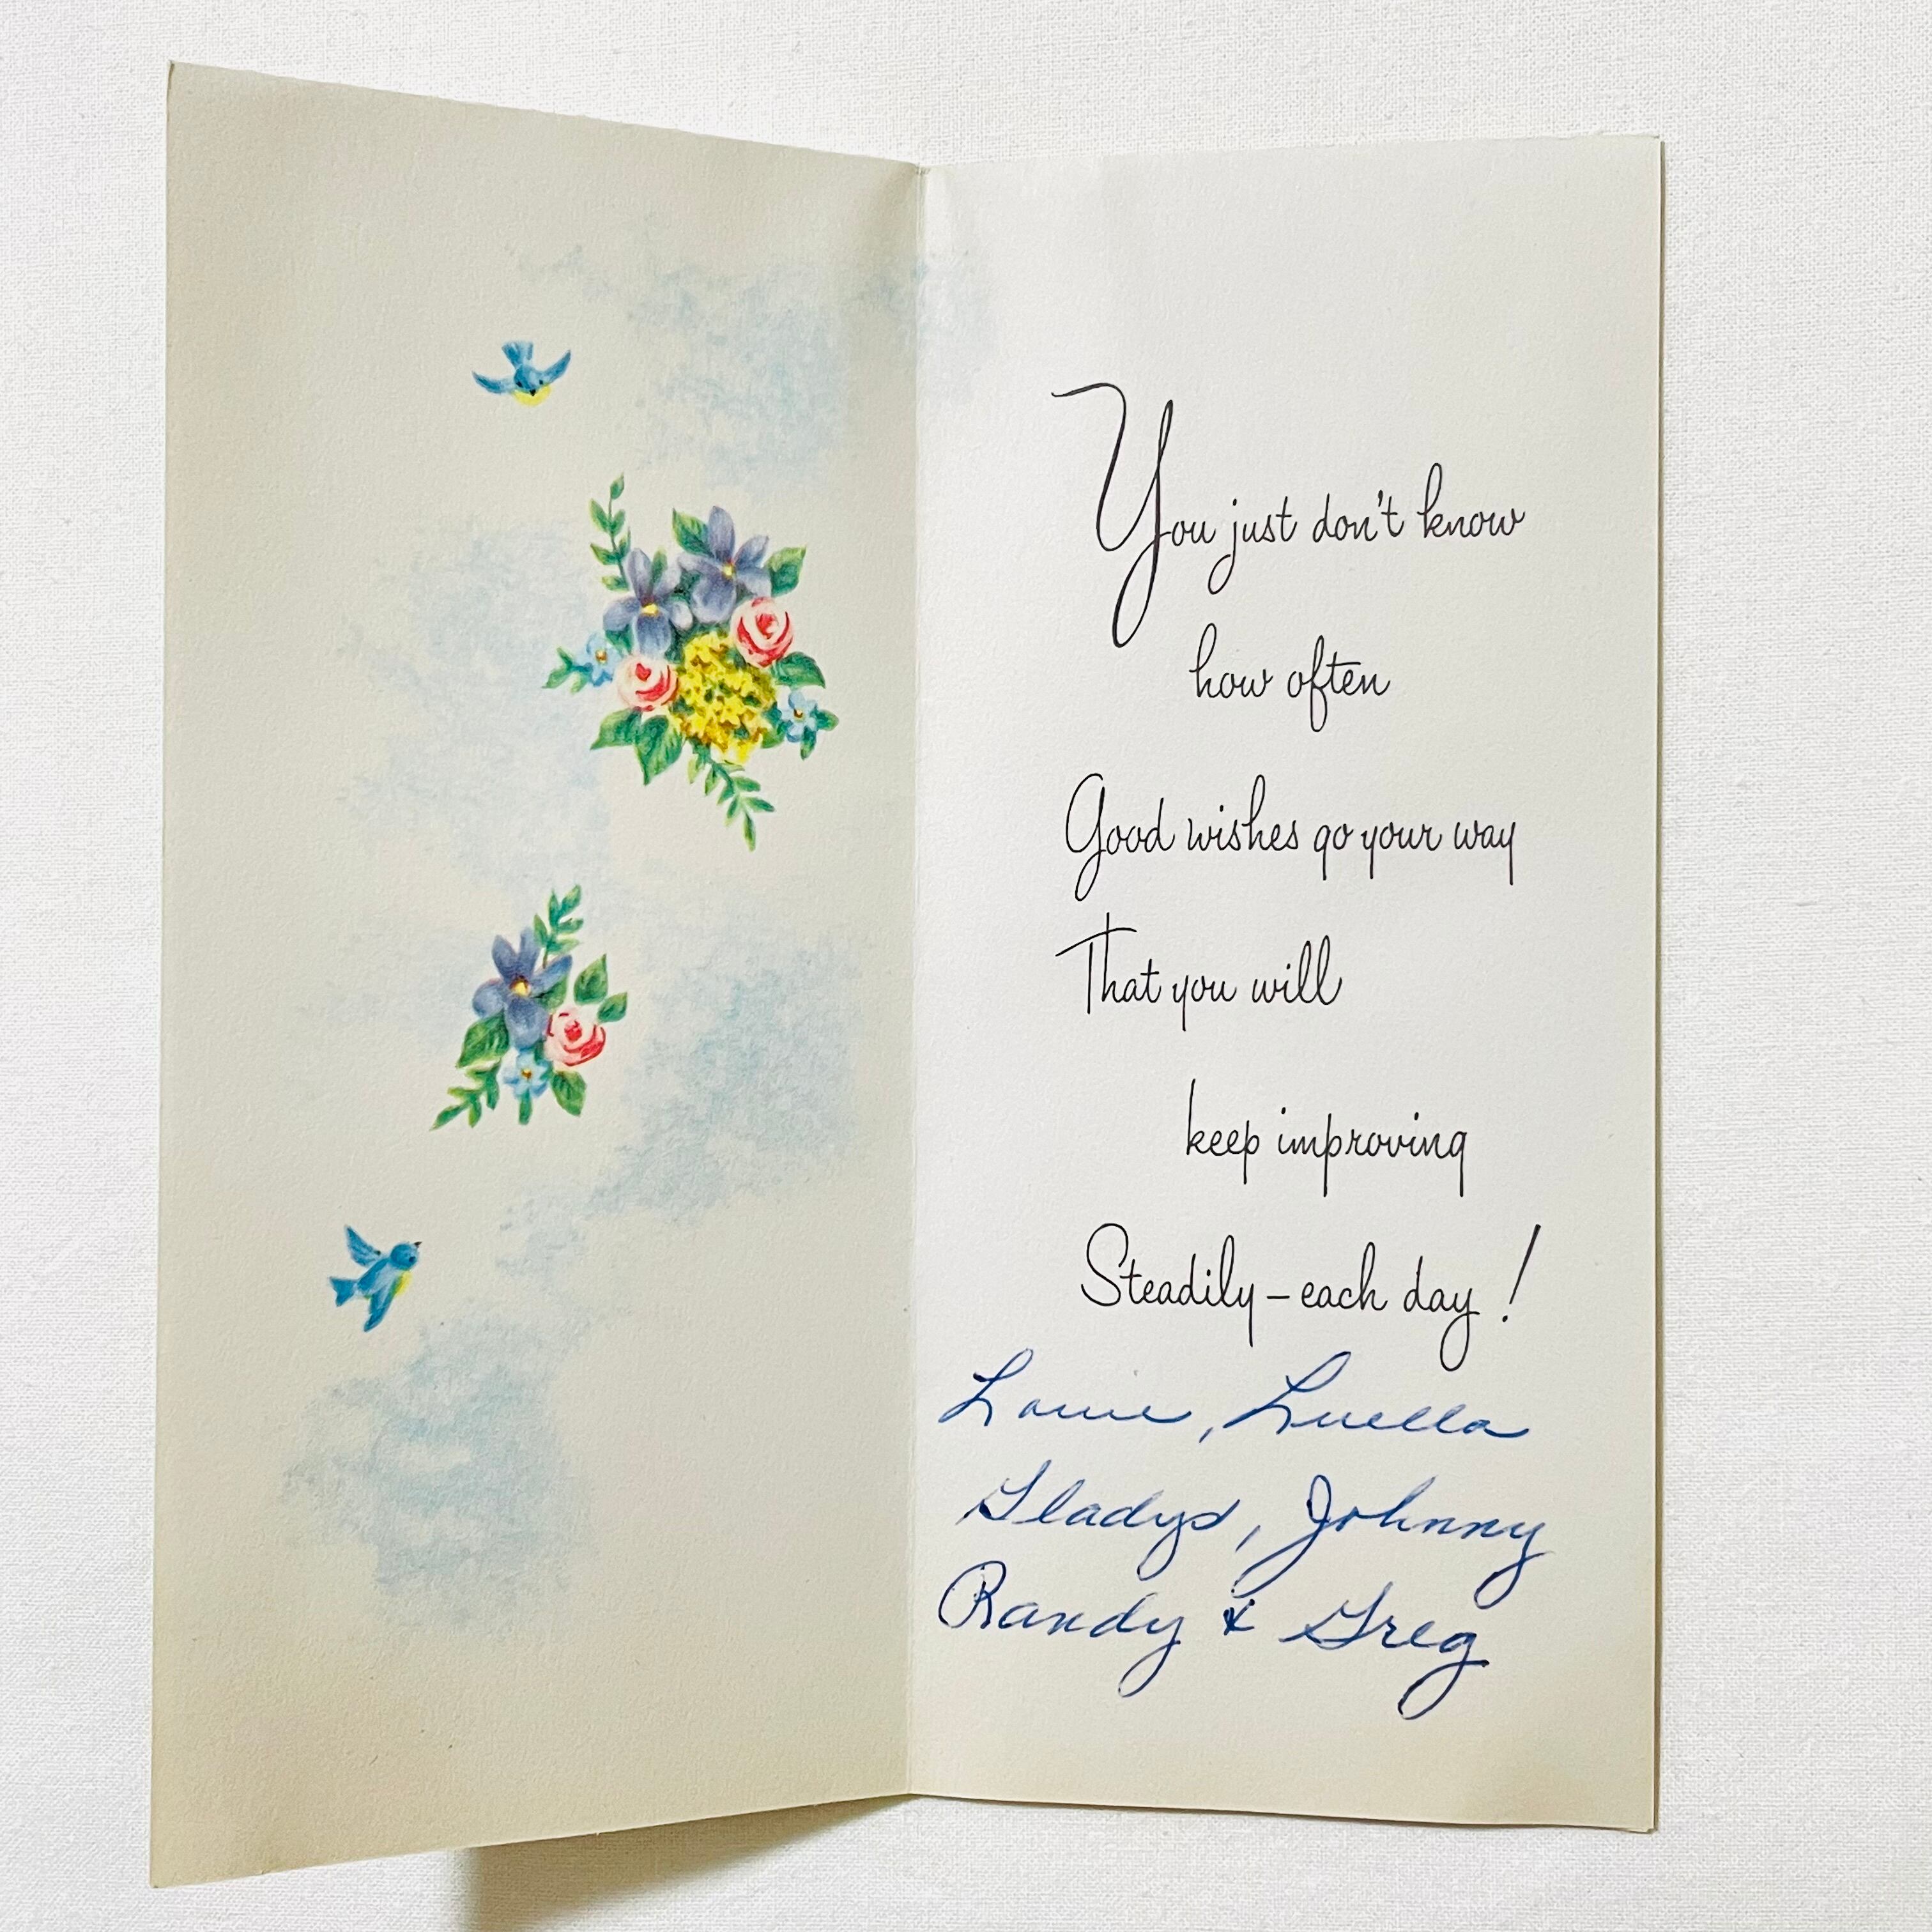 You just don't know
how often
Good wishes go your way
That you will
keep improving
Steadily – each day!
Louie, Luella
Gladys, Johnny
Randy & Greg